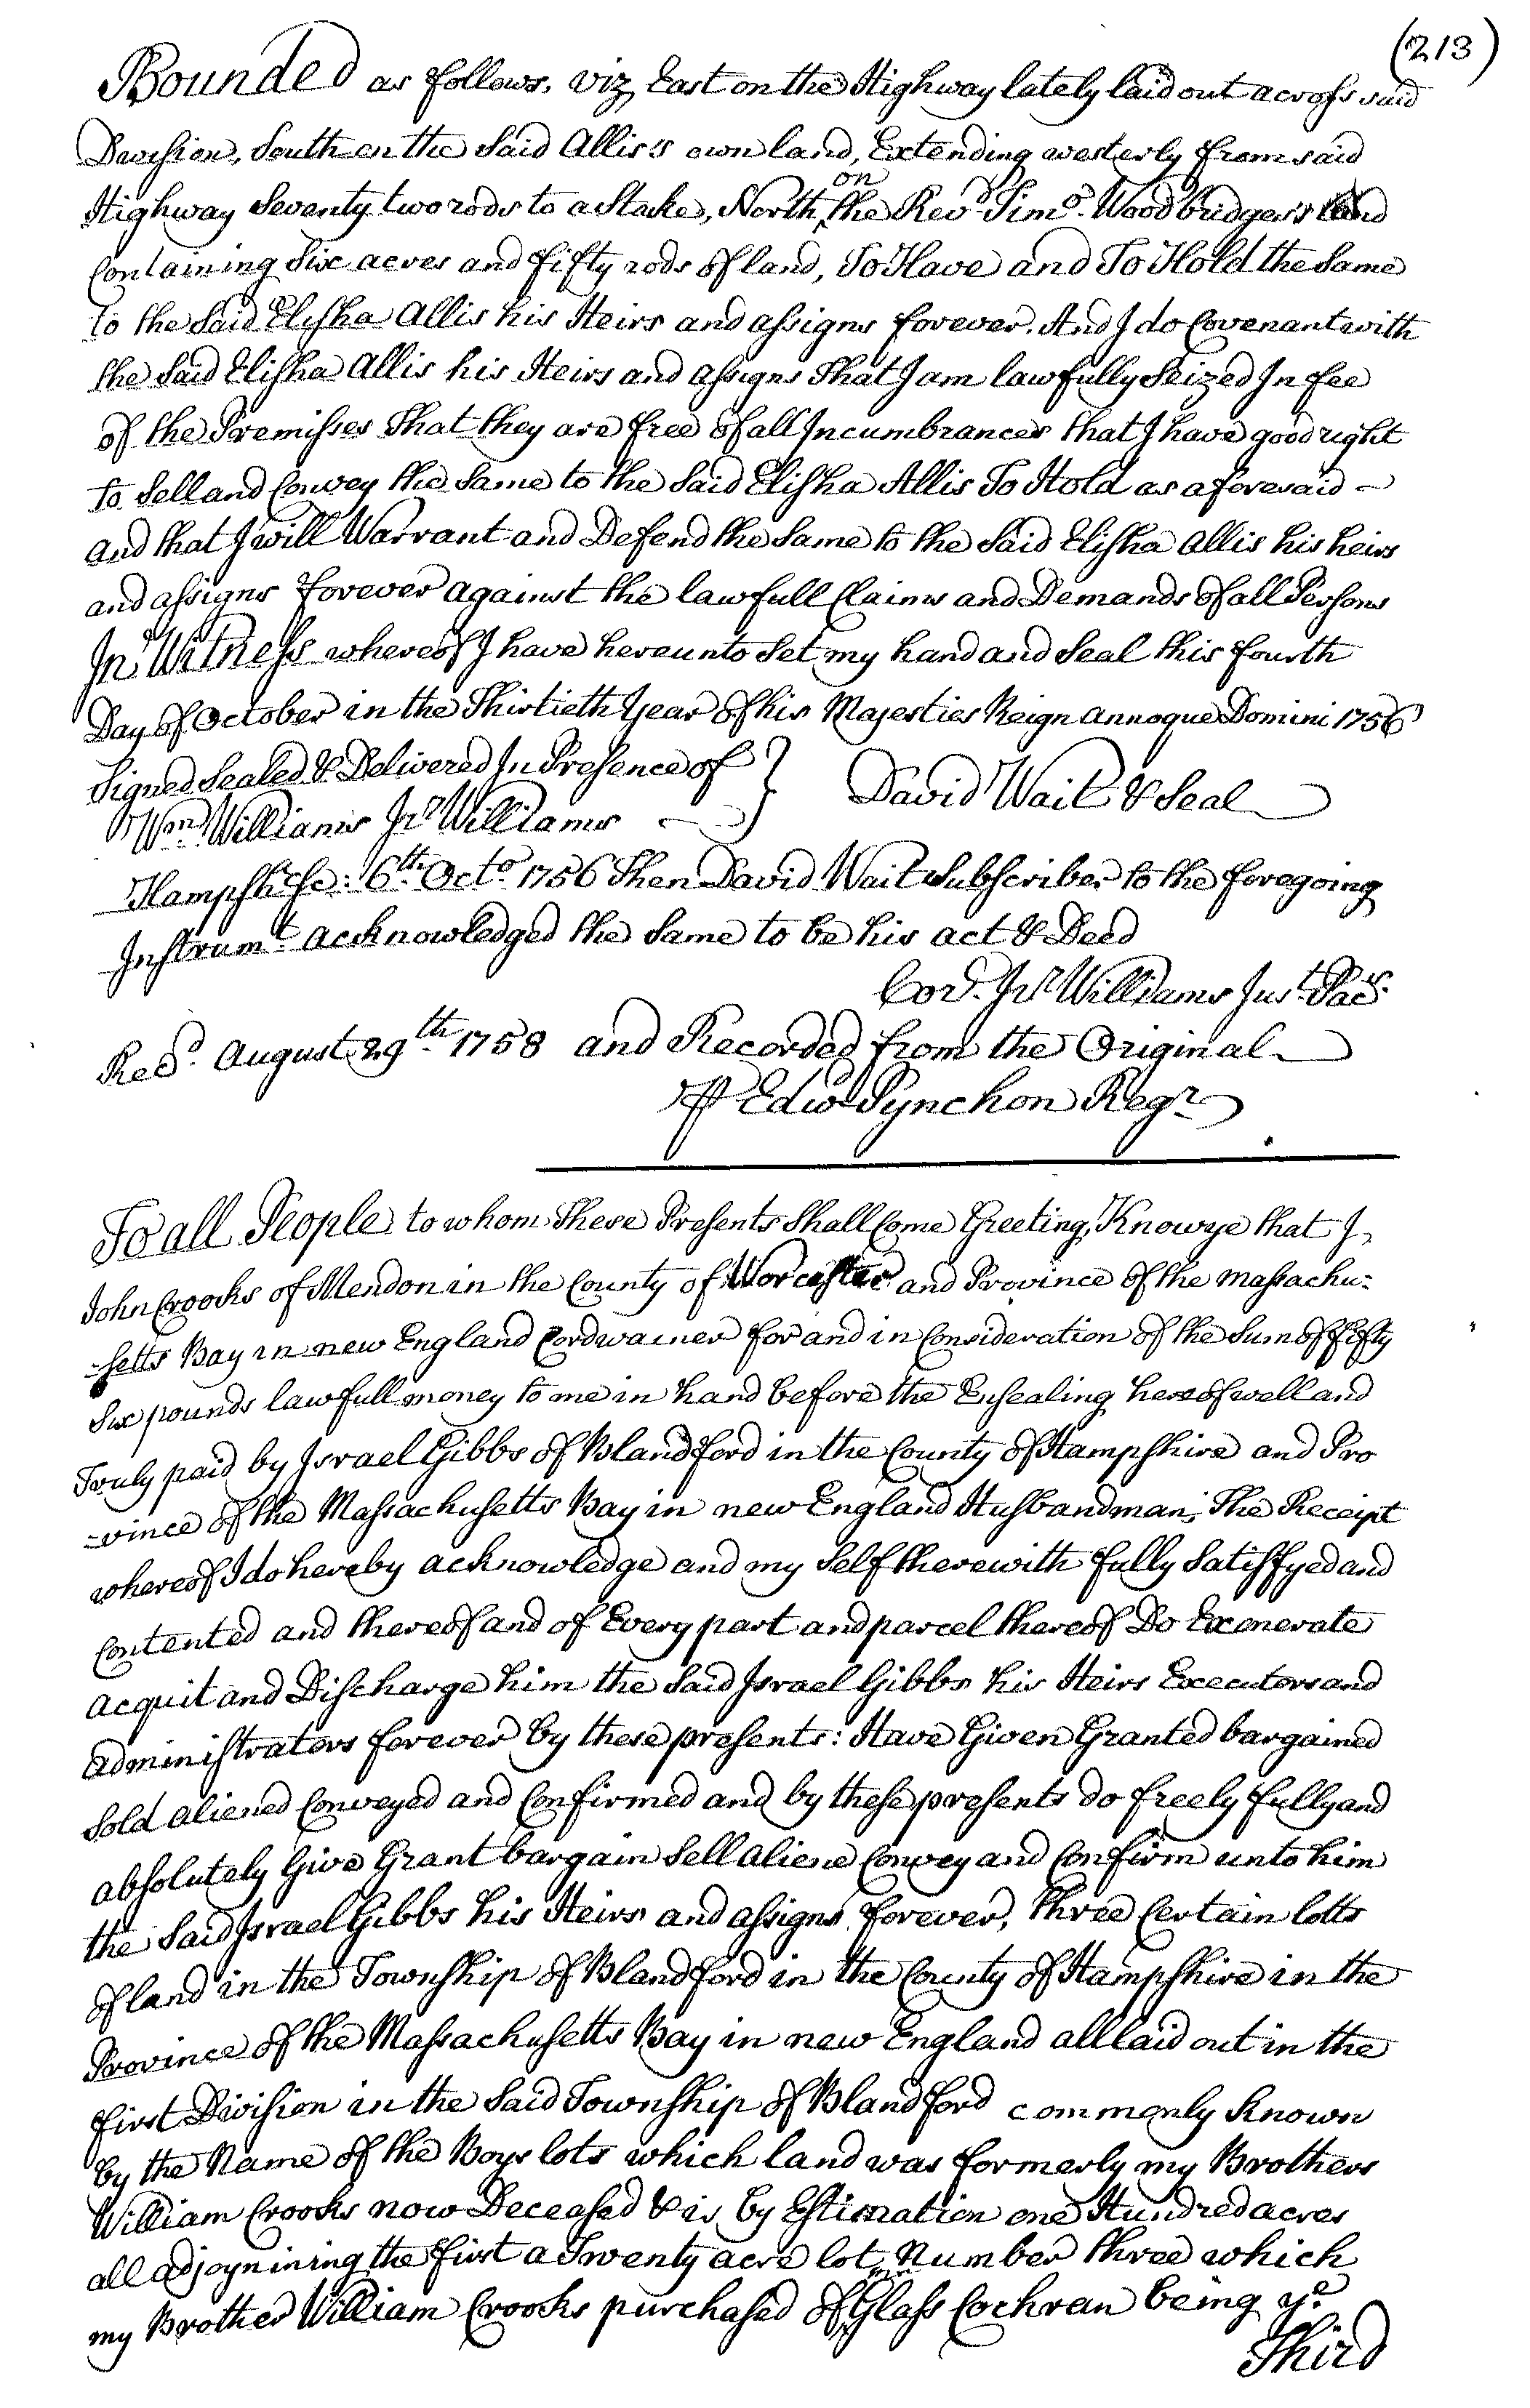 (213)
Bounded as follows, viz, East on the Highway lately laid out across said
Division, South on the Said Allis's own land, Extending westerly from said
Highway Seventy two rods to a Stake, North on the Revd Timo. Woodbridges's land
Containing Six acres and fifty rods of land, To Have and To Hold the Same
to the Said Elisha Allis his Heirs and assigns forever. And I do Covenant with
the Said Elisha Allis his Heirs and assigns That I am lawfully Seized In fee
of the Premisses That they are free of all Incumbrances that I have good right
to Sell and Convey the Same to the Said Elisha Allis To Hold as aforesaid —
and that I will Warrant and Defend the Same to the Said Elisha Allis his heirs
and assigns forever against the lawfull Claims and Demands of all Persons
In Witness whereof I have hereunto Set my hand and Seal this fourth
Day of October in the Thirtieth Year of his Majesties Reign Annoque Domini 1756
Signed Sealed & Delivered In Presence of } David Wait & Seal
Wm Williams Jr Williams
Hampshr sc: 6th Octo 1756 Then David Wait Subscriber to the foregoing
Instrumt acknowledged the Same to be his act & Deed
Cor. Jr Williams Just Pacs.
Recd. August 29th 1758 and Recorded from the Original
P Edwd Pynchon Regr
To all People to whom These Presents Shall Come Greeting, Know ye that I,
John Crooks of Mendon in the County of Worcester and Province of the Massachu-
-setts Bay in new England Cordwainer for and in Consideration of the Sum of fifty
Six pounds lawfull money to me in hand before the Ensealing hereof well and
Truly paid by Israel Gibbs of Blandford in the County of Hampshire and Pro
-vince of the Massachusetts Bay in new England Husbandman, The Receipt
whereof I do hereby acknowledge and my Self therewith fully Satisfyed and
Contented and thereof and of Every part and parcel thereof Do Exonerate
acquit and Discharge him the Said Israel Gibbs his Heirs Executors and
administrators forever by these presents: Have Given Granted bargained
Sold aliened Conveyed and Confirmed and by these presents do freely fully and
absolutely Give Grant bargain Sell aliene Convey and Confirm unto him
the Said Israel Gibbs his Heirs and assigns forever, three Certain lotts
of land in the Township of Blandford in the County of Hampshire in the
Province of the Massachusetts Bay in new England all laid out in the
first Division in the Said Township of Blandford commonly known
by the Name of the Boys lots which land was formerly my Brothers
William Crooks now Deceased & is by Estimation one Hundred acres
all adjoynining the first a Twenty acre lot Number three which
my Brother William Crooks purchased of Mr Glass Cochran being ye
Third